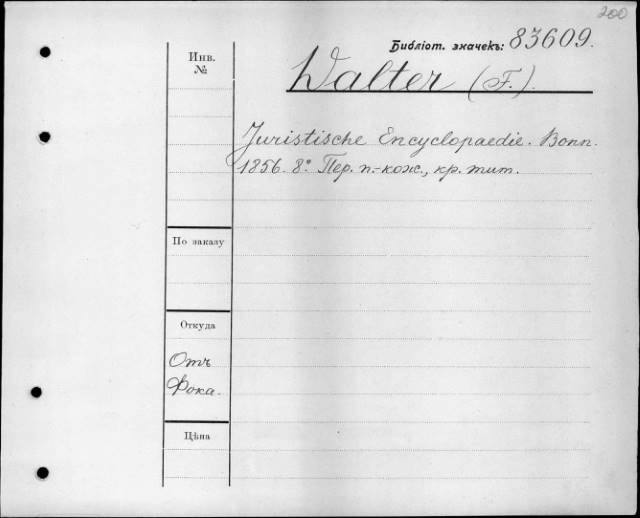 200
Библіот. значекъ: 83609.
Инв.
№
Walter (F.).
Juristische Encyclopaedie. Bonn.
1856. 8° Пер. п.-кож., кр. тит.
По заказу
Откуда
Отъ
Фока.
Цѣна